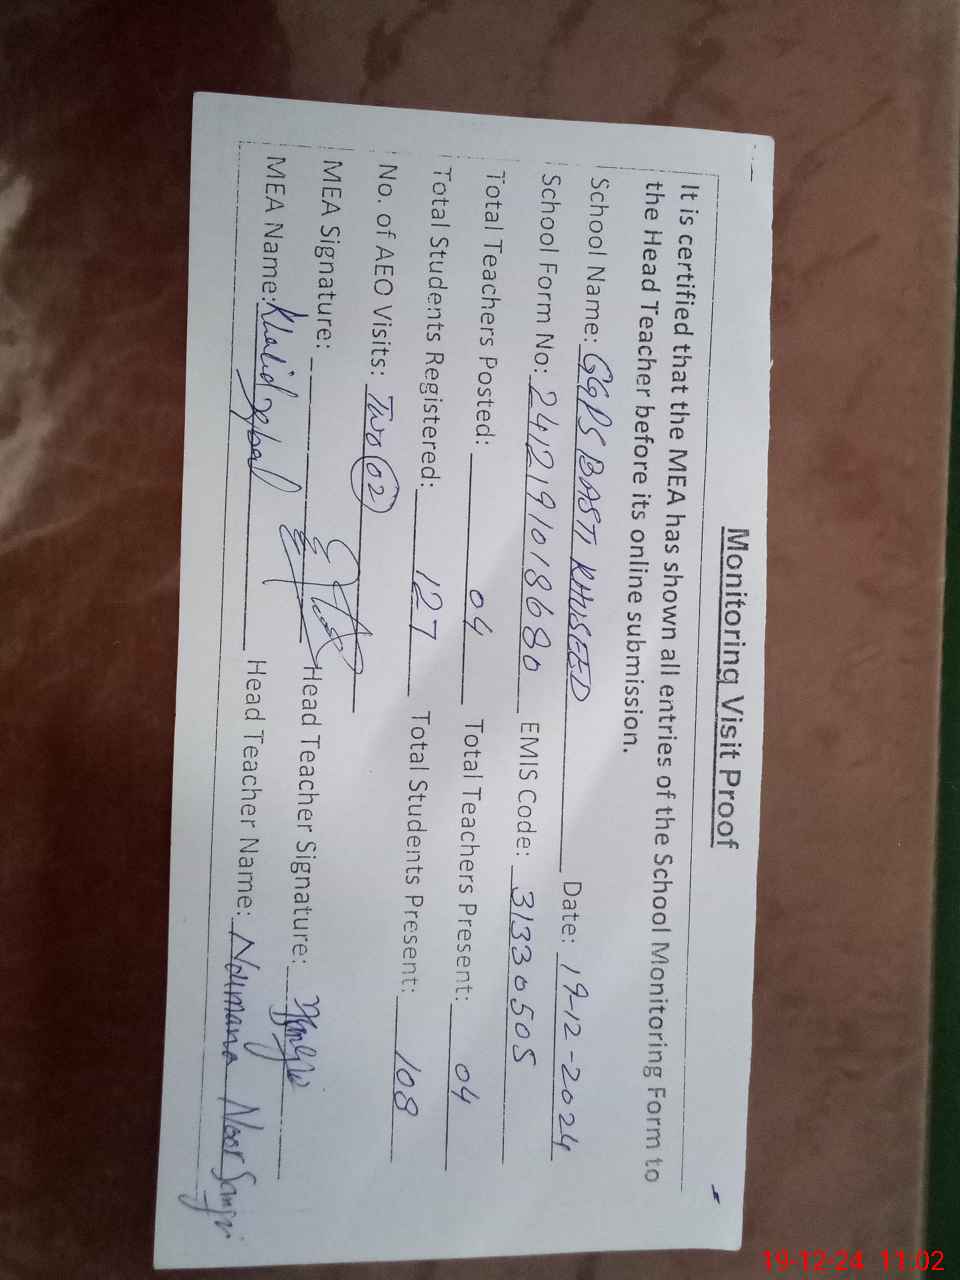 Monitoring Visit Proof
It is certified that the MEA has shown all entries of the School Monitoring Form to
the Head Teacher before its online submission.
School Name: GGPS BASTI KHUSEED Date: 19-12-2024
School Form No: 2412191018680 EMIS Code: 31330505
Total Teachers Posted: 04 Total Teachers Present: 04
Total Students Registered: 127 Total Students Present: 108
No. of AEO Visits: Two 02
MEA Signature: Head Teacher Signature:
MEA Name: Khalid Iqbal Head Teacher Name: Noumana Noor
19-12-24 11:02